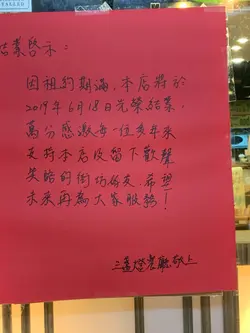 結業啓示：
因租約期滿，本店將於
2019年6月18日光榮結業。
萬分感激每一位多年來
支持本店及留下歡聲
笑語的街坊好友，希望
未來再為大家服務！
三盞燈餐廳敬上